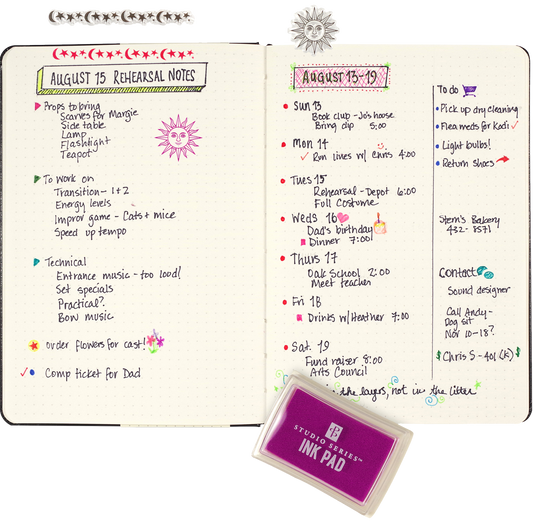 AUGUST 15 REHEARSAL NOTES
Props to bring
Scarves for Margie
Side table
Lamp
Flashlight
Teapot
To work on
Transition - 1+2
Energy levels
Improv game - Cats + mice
Speed up tempo
Technical
Entrance music - too loud!
Set specials
Practical?
Bow music
order flowers for cast!
Comp ticket for Dad
AUGUST 13-19
Sun 13
Book club - Jo's house
Bring dip 5:00
Mon 14
Run lines w/ Chris 4:00
Tues 15
Rehearsal - Depot 6:00
Full Costume
Weds 16
Dad's birthday
Dinner 7:00
Thurs 17
Oak School 2:00
Meet teacher
Fri 18
Drinks w/Heather 7:00
Sat. 19
Fund raiser 8:00
Arts Council
the layers, not in the litter
To do
Pick up dry cleaning
Flea meds for Kodi
Light bulbs!
Return shoes
Stern's Bakery
432-8571
Contact
Sound designer
Call Andy-
Dog sit
Nov 10-18?
Chris S - 401(k)
STUDIO SERIES™
INK PAD